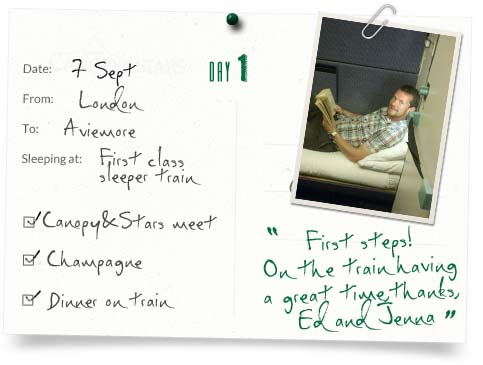 Date: 7 Sept
From: London
To: Aviemore
Sleeping at: First class
sleeper train
Canopy&Stars meet
Champagne
Dinner on train
DAY 1
" First steps!
On the train having
a great time, thanks,
Ed and Jenna "